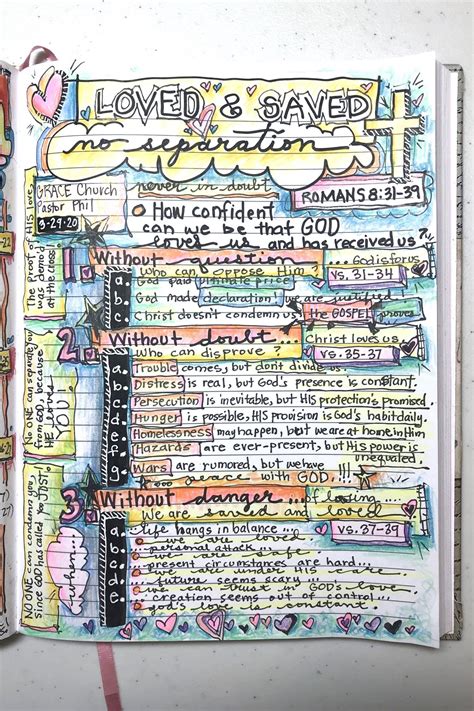 LOVED & SAVED
no separation
GRACE Church
Pastor Phil
9-29-20
never in doubt
ROMANS 8:31-39
How confident
can we be that GOD
loves us and has received us?
The proof of HIS love
was demo'd
at the cross!
1. Without question ... God is for us
Who can oppose Him?
vs. 31-34
a. God paid ultimate price
b. God made declaration we are justified
c. Christ doesn't condemn us the GOSPEL proves
2. Without doubt... Christ loves us.
Who can disprove?
vs. 35-37
No ONE can separate you
from GOD because
HE loves
YOU!
a. Trouble comes, but don't divide us.
b. Distress is real, but God's presence is constant.
c. Persecution is inevitable, but HIS protection's promised.
d. Hunger is possible, HIS provision is God's habit daily.
e. Homelessness may happen, but we are at home in Him
f. Hazards are ever-present, but His power is
unequaled.
g. Wars are rumored, but we have
peace with GOD...!!!
3. Without danger... of losing...
We are saved and loved
vs. 37-39
NO ONE can condemn you,
since GOD has called you JUST!
when...
a. life hangs in balance...
we are loved
b. personal attack...
we are safe
c. present circumstances are hard...
we are under
d. future seems scary...
we can trust in GOD's love.
e. creation seems out of control...
god's love is constant.